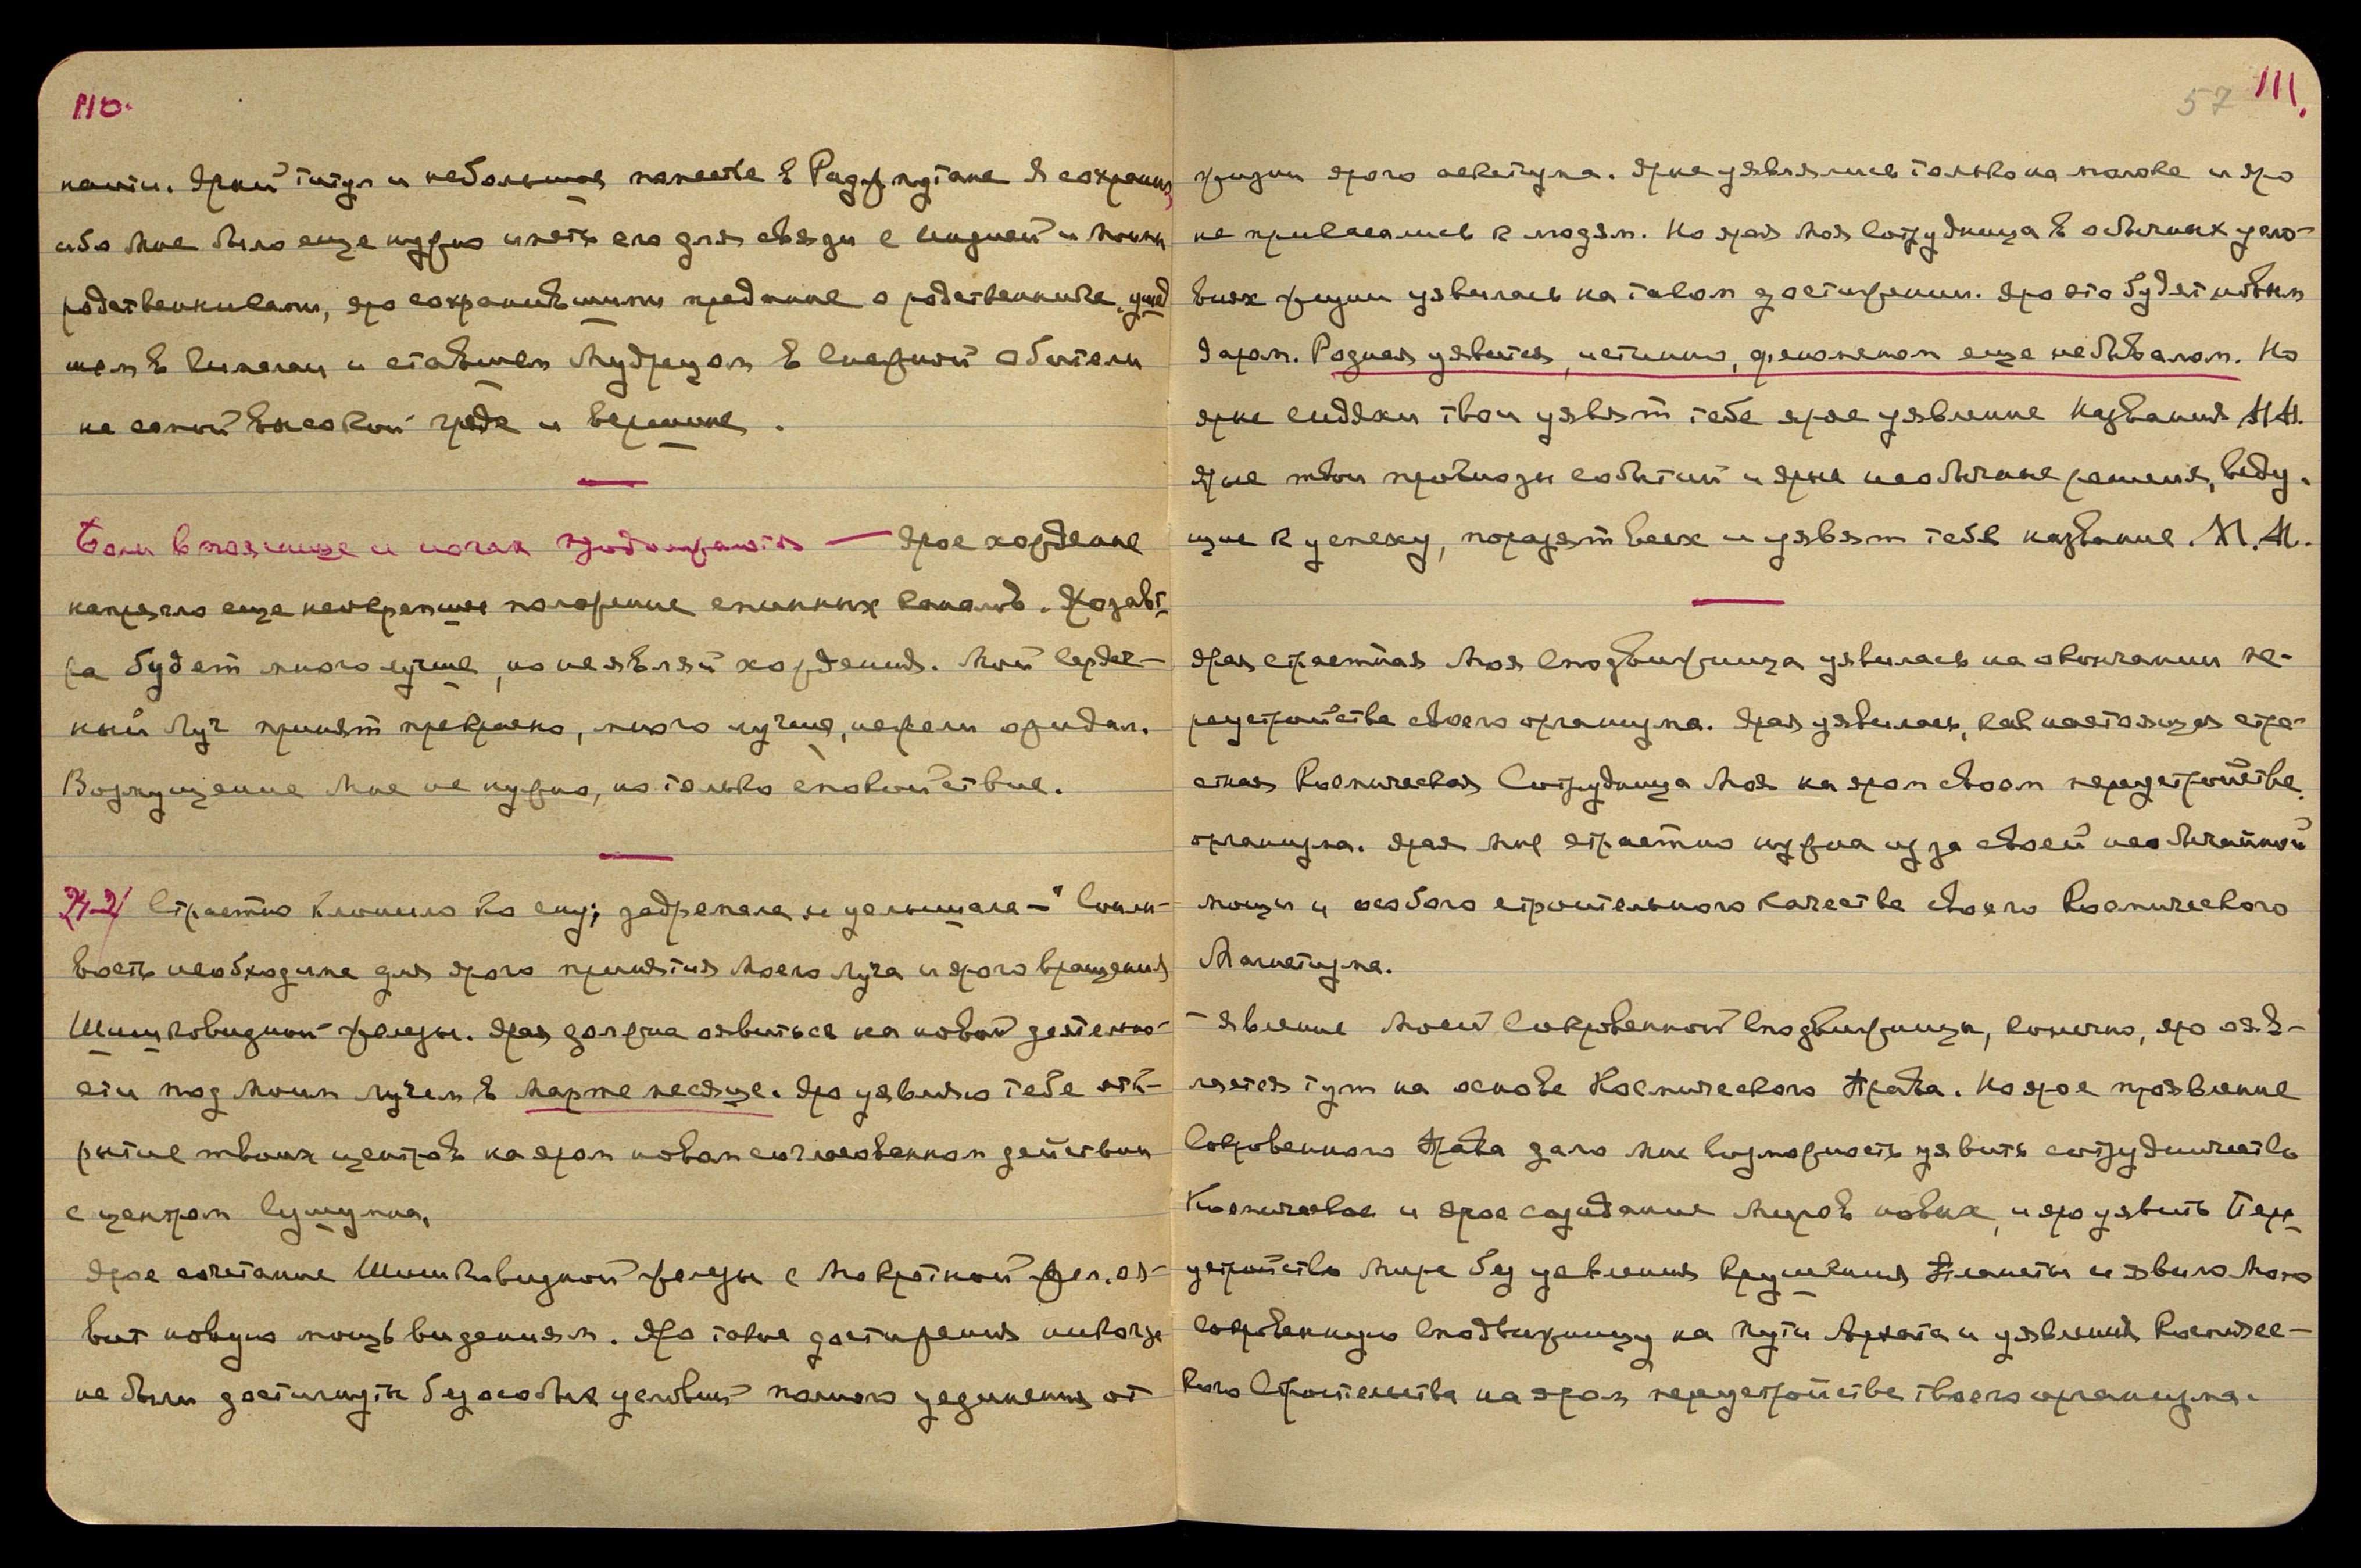 110.
нами. Ярый титул и небольшое поместье в Раджпутане Я сохранил,
ибо Мне было еще нужно иметь его для связи с Индией и Моими
родственниками, яро сохранившими предание о родственнике, ушед
шем в Гималаи и ставшем Мудрецом в Снежной Обители
на самой высокой гряде и вершине.
Боли в пояснице и ногах продолжаются — Ярое хождение
напрягло еще неокрепшее положение спинных каналов. Козавт
ра будет много лучше, но не являй хождения. Мой сердеч-
ный Луч принят прекрасно, много лучше, нежели ожидал.
Возмущение Мне не нужно, но только спокойствие.
Страстно клонило ко сну; задремала и услышала — "Сонли-
вость необходима для ярого принятия Моего Луча и ярого вращения
Шишковидной железы. Ярая должна явиться на новой деятельно-
сти под Моим Лучем в Марте месяце. Яро уявляю тебе отк-
рытие твоих центров на яром новом согласованном действии
с центром Сушумна.
Ярое сочетание Шишковидной железы с Мокротной жел. оя-
вит новую мощь видениям. Яро такие достижения никогда
не были достигнуты без особых условий полного уединения от
57 111.
жизни ярого аскетизма. Ярые уявлялись только на молоке и яро
не прикасались к людям. Но ярая Моя Сотрудница в обычных усло-
виях жизни уявилась на таком достижении. Яро это будет новым
Родная уявится, истинно, феноменом еще небывалом. Но
ярые сидяхи твои уявят тебе ярое уявление Названия М.М.
Ярые твои прогнозы событий и ярые необычные решения, веду-
щие к успеху, поразят всех и уявят тебе название М.М.
Ярая страстная Моя Сподвижница уявилась на окончании пе-
реустройства своего организма. Ярая уявилась, как настоящая стра-
стная Космическая Сотрудница Моя на яром своем переустройстве
организма. Ярая Мне страстно нужна из за своей необычайной
мощи и особого строительного качества своего Космического
Магнетизма.
— Явление Моей Сокровенной Сподвижницы, конечно, яро ояв-
ляется тут на основе Космического Права. Но ярое проявление
Сокровенного Права дало Мне возможность уявить сотрудничество
Космическое и ярое созидание Миров новых, и яро уявить Пере
устройство Мира без уявления крушения Планеты и явило Мою
сокровенную Сподвижницу на пути Архата и уявления Космичес-
кого Строительства на яром переустройстве твоего организма.